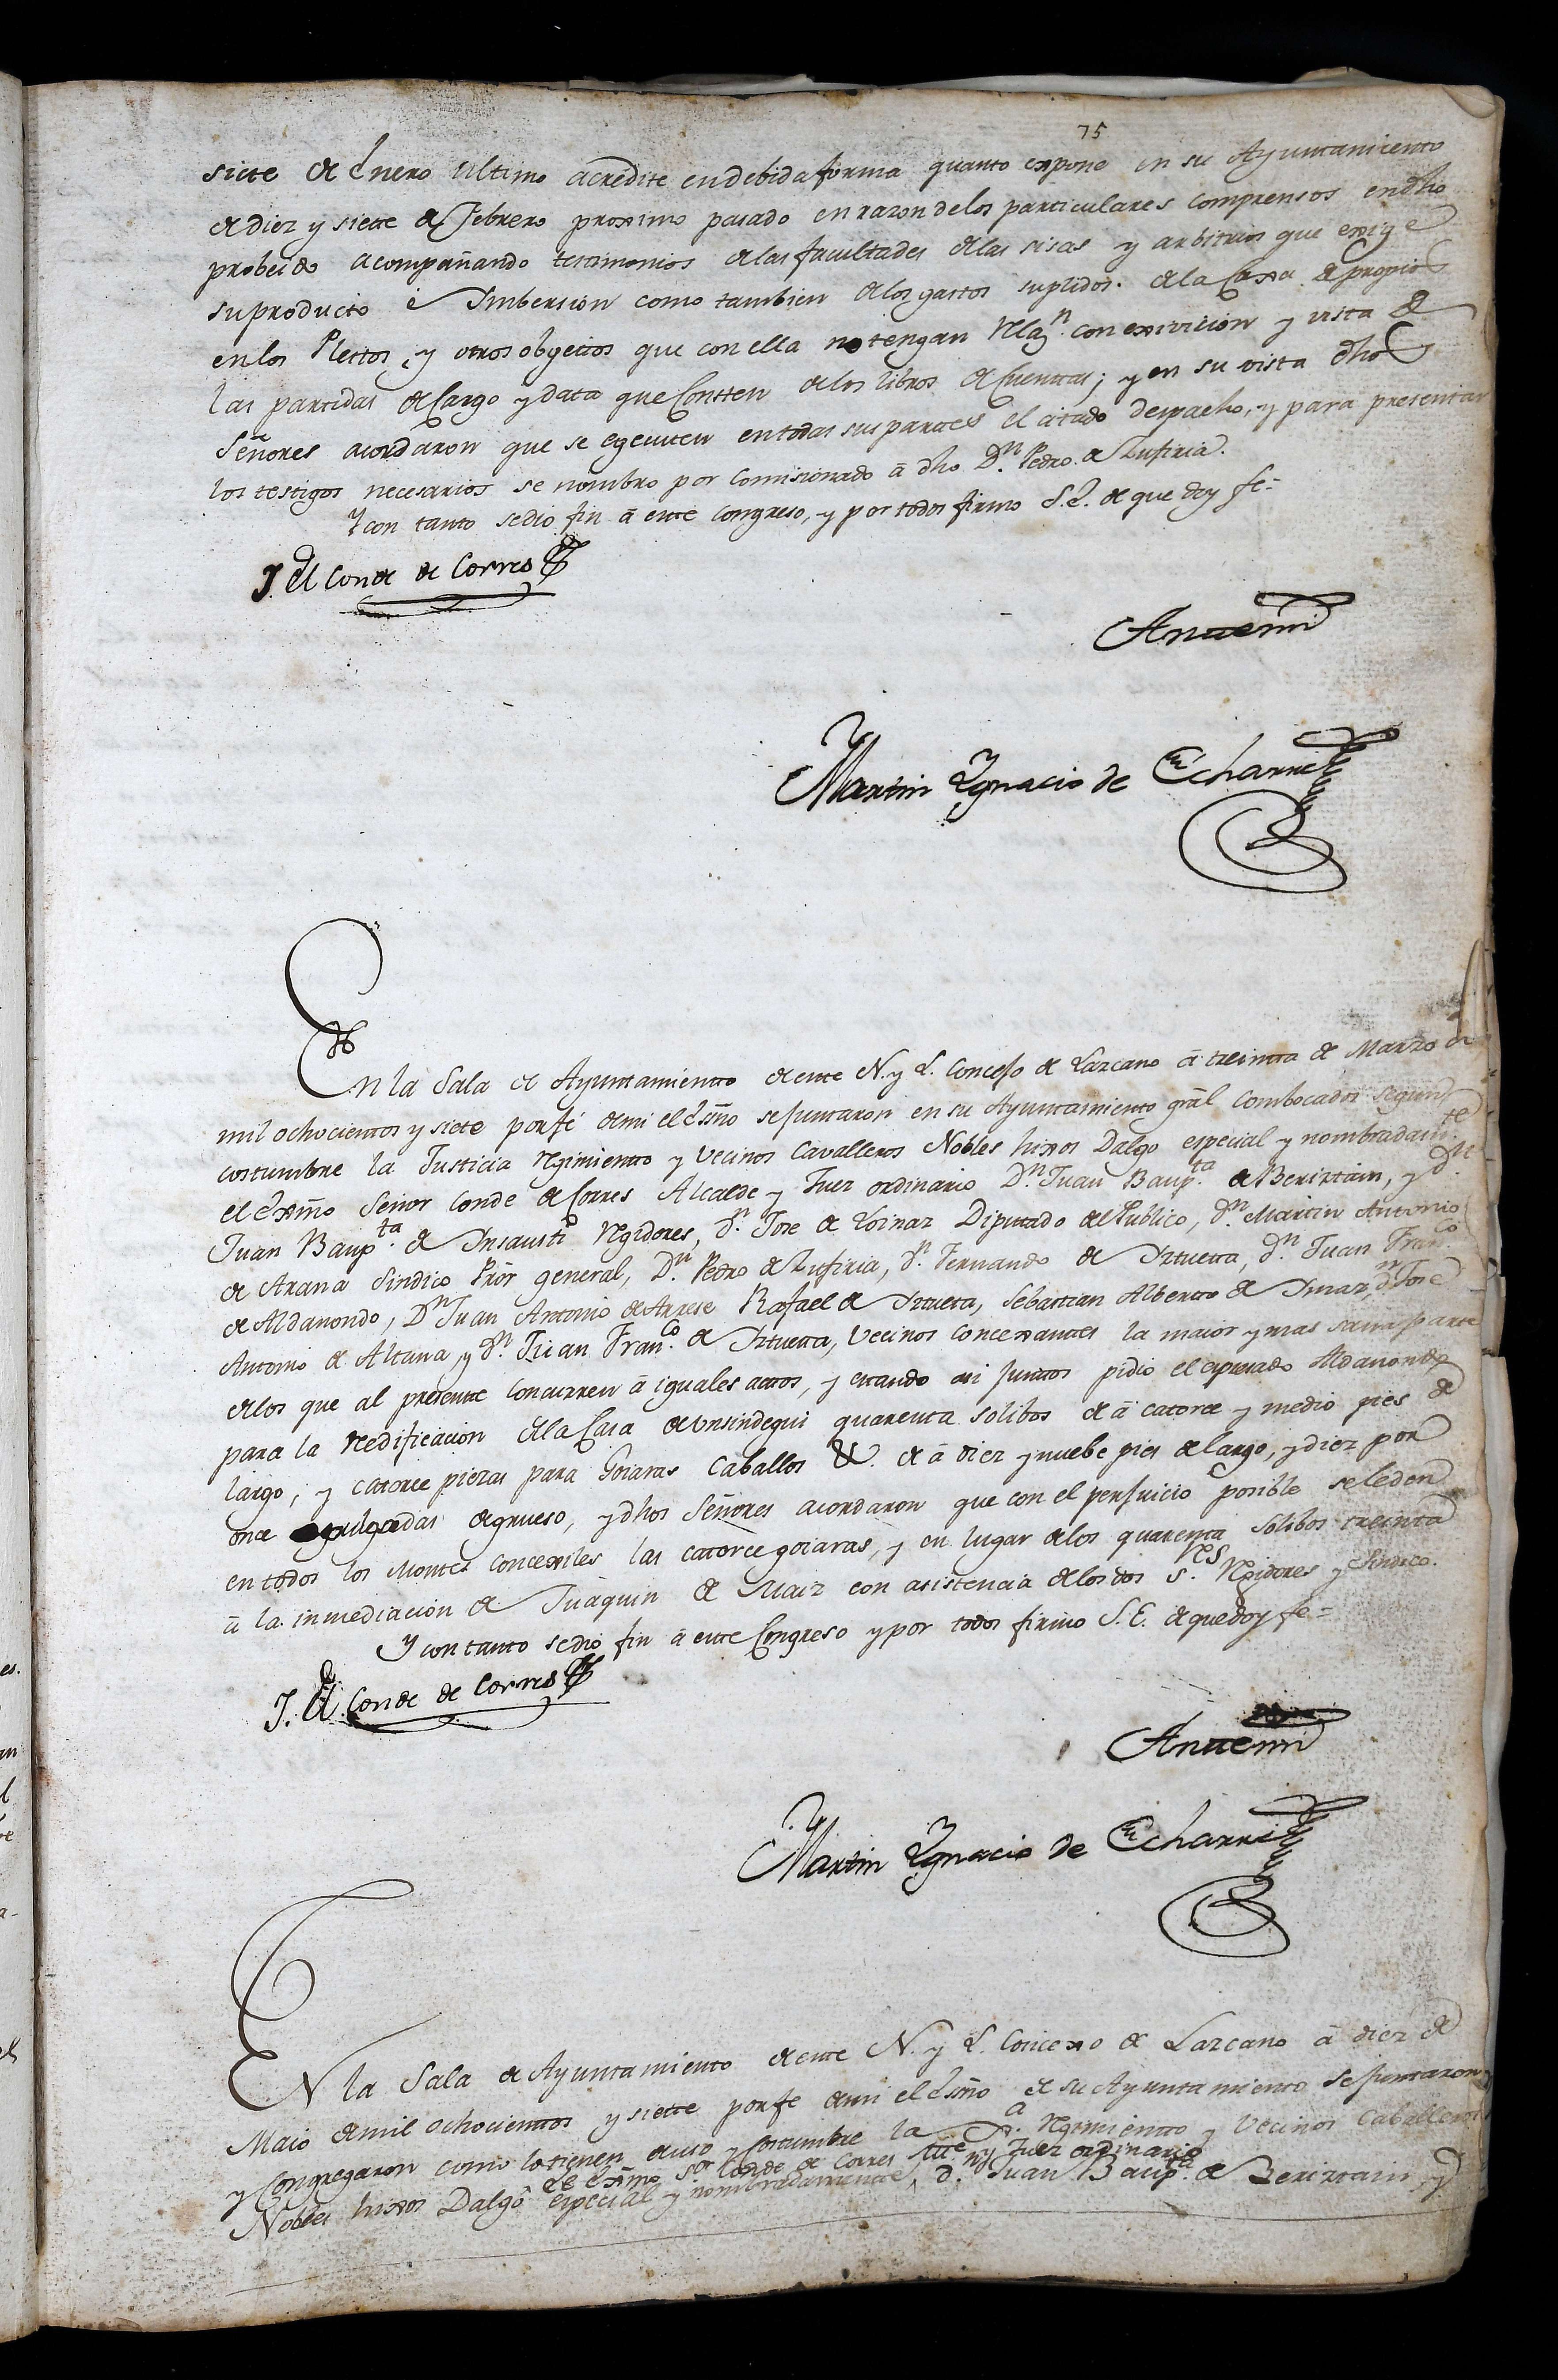 75
siete de Enero ultimo acredite en debida forma quanto expone en su Ayuntamiento
de diez y siete de Febrero proximo pasado en razon de los particulares comprensos en dho
probeido acompañando testimonios de las facultades de las sisas y arbitrios que exige
su producto é Ymbersion como tambien de los gastos suplidos de la Caxa de propios
en los Pleitos, y otros obgetos que con ella no tengan Relazn. con exivicion y vista de
las partidas de Cargo y data que Consten de los libros de Cuentas; y en su vista dhos
Señores acordaron que se egecuten en todas sus partes el citado despacho, y para presentar
los testigos necesarios se nombro por Comisionado á dho Dn. Pedro de Zufiria.
Y con tanto se dio fin á este Congreso, y por todos firmo S.E. de que doy fe=
J. El Conde de Corres
Ante mi
Martin Ygnacio de Echarri
En la Sala de Ayuntamiento de este N. y L. Concejo de Lazcano á treinta de Marzo de
mil ochocientos y siete por fé de mi el Esno se juntaron en su Ayuntamiento gral Combocados segun
costumbre la Justicia Regimiento y Vecinos Cavalleros Nobles hixos Dalgo especial y nombradamte.
el Exmo Señor Conde de Corres Alcalde y Juez ordinario Dn. Juan Baupta. de Beriztain, y Dn.
Juan Baupta. de Ynsausti Regidores, Dn. Jose de Loinaz Diputado del Publico, Dn. Martin Antonio
de Arana Sindico Pror general, Dn. Pedro de Zufiria, Dn. Fernando de Yztueta, Dn. Juan Franco.
de Aldanondo, Dn Juan Antonio de Arrese Rafael de Yztueta, Sebastian Alberto de Ymaz, Dn Jose
Antonio de Altuna, y Dn. Juan Franco. de Yztueta, Vecinos Concexantes la maior y mas sana parte
de los que al presente Concurren á iguales actos, y estando asi juntos pidio el expresado Aldanondo
para la Redificacion de la Casa de Unsindegui quarenta solibos de á catorce y medio pies de
largo, y catorce piezas para Goiaras Caballos &. de á diez y nuebe pies de largo, y diez por
once pulgadas de grueso, y dhos Señores acordaron que con el perjuicio posible se le den
en todos los Montes Concexiles las catorce goiaras, y en lugar de los quarenta solibos treinta
á la inmediacion de Juaquin de Maiz con asistencia de los dos Sres. Regidores y Sindico.
Y con tanto se dio fin á este Congreso y por todos firmo S.E. de que doy fe=
J. El Conde de Corres
Ante mi
Martin Ygnacio de Echarri
EN la Sala de Ayuntamiento de este N. y L. Concexo de Lazcano á diez de
Maio de mil ochocientos y siete por fe de mi el Esno de su Ayuntamiento se juntaron
y Congregaron como lo tienen de uso y Costumbre la Ja. Regimiento y Vecinos Caballeros
el Exmo Sor Conde de Corres Alce. y Juez ordinario
Nobles hixos Dalgo especial y nombradamente, Dn. Juan Baupta. de Beriztain y